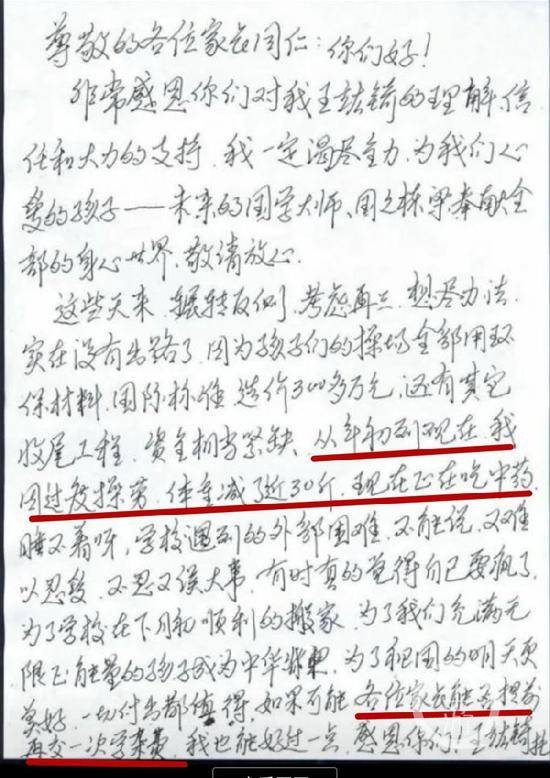 尊敬的各位家长同仁：你们好！
非常感恩你们对我王竑锜的理解、信
任和大力的支持。我一定竭尽全力，为我们心
爱的孩子——未来的国学大师、国之栋梁奉献全
部的身心世界，敬请放心。
这些天来，辗转反侧，考虑再三，想尽办法，
实在没有出路了。因为孩子们的操场全部用环
保材料，国际标准，造价300多万元，还有其它
收尾工程，资金相当紧缺，从年初到现在，我
因过度操劳，体重减了近30斤，现在正在吃中药，
睡不着呀，学校遇到的外部困难，不能说，又难
以忍受，不忍又误大事，有时真的觉得自己要疯了，
为了学校在下月初顺利的搬家，为了我们充满无
限正能量的孩子成为中华，为了祖国的明天更
美好，一切付出都值得，如果可能各位家长能否提前
再交一次学杂费，我也能好过一点，感恩你们！王竑锜拜